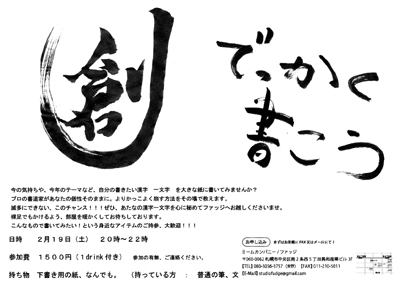 創
でっかく
書こう
今の気持ちや、今年のテーマなど、自分の書きたい漢字 一文字 を大きな紙に書いてみませんか？
プロの書道家があなたの個性をそのままに。よりかっこよく指す方法をその場で教えます。
滅多にできない、このチャンス！！！ぜひ、あなたの漢字一文字を心に秘めてファッジへお越しくださいませ。
裸足でもかけるよう、部屋を暖かくしてお待ちしております。
こんなもので書いてみたい！という身近なアイテムのご持参、大歓迎！！！
日時 ２月１９日（土） ２０時〜２２時
参加費 １５００円（１drink付） 参加の有無、ご連絡ください。
持ち物 下書き用の紙、なんでも。（持っている方 ： 普通の筆、文
お申し込み まずはお気軽にFAX又はメールにて！
ミールカンパニー/ファッジ